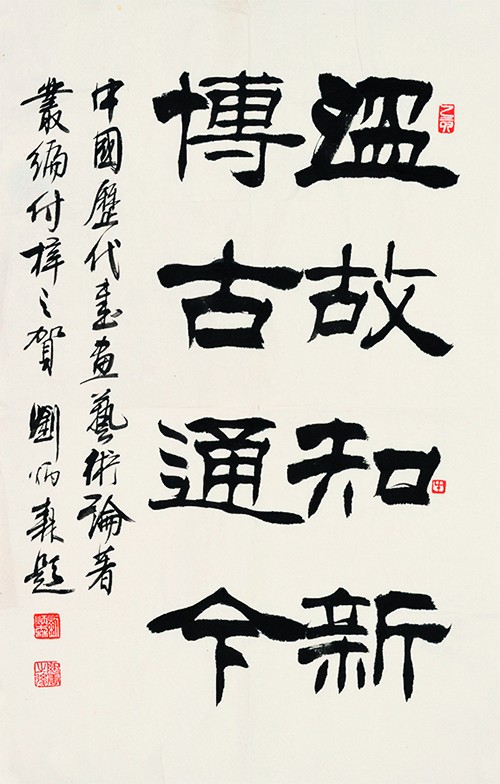 溫故知新
博古通今
中國歷代書畫藝術論著
叢編付梓之賀 劉炳森題